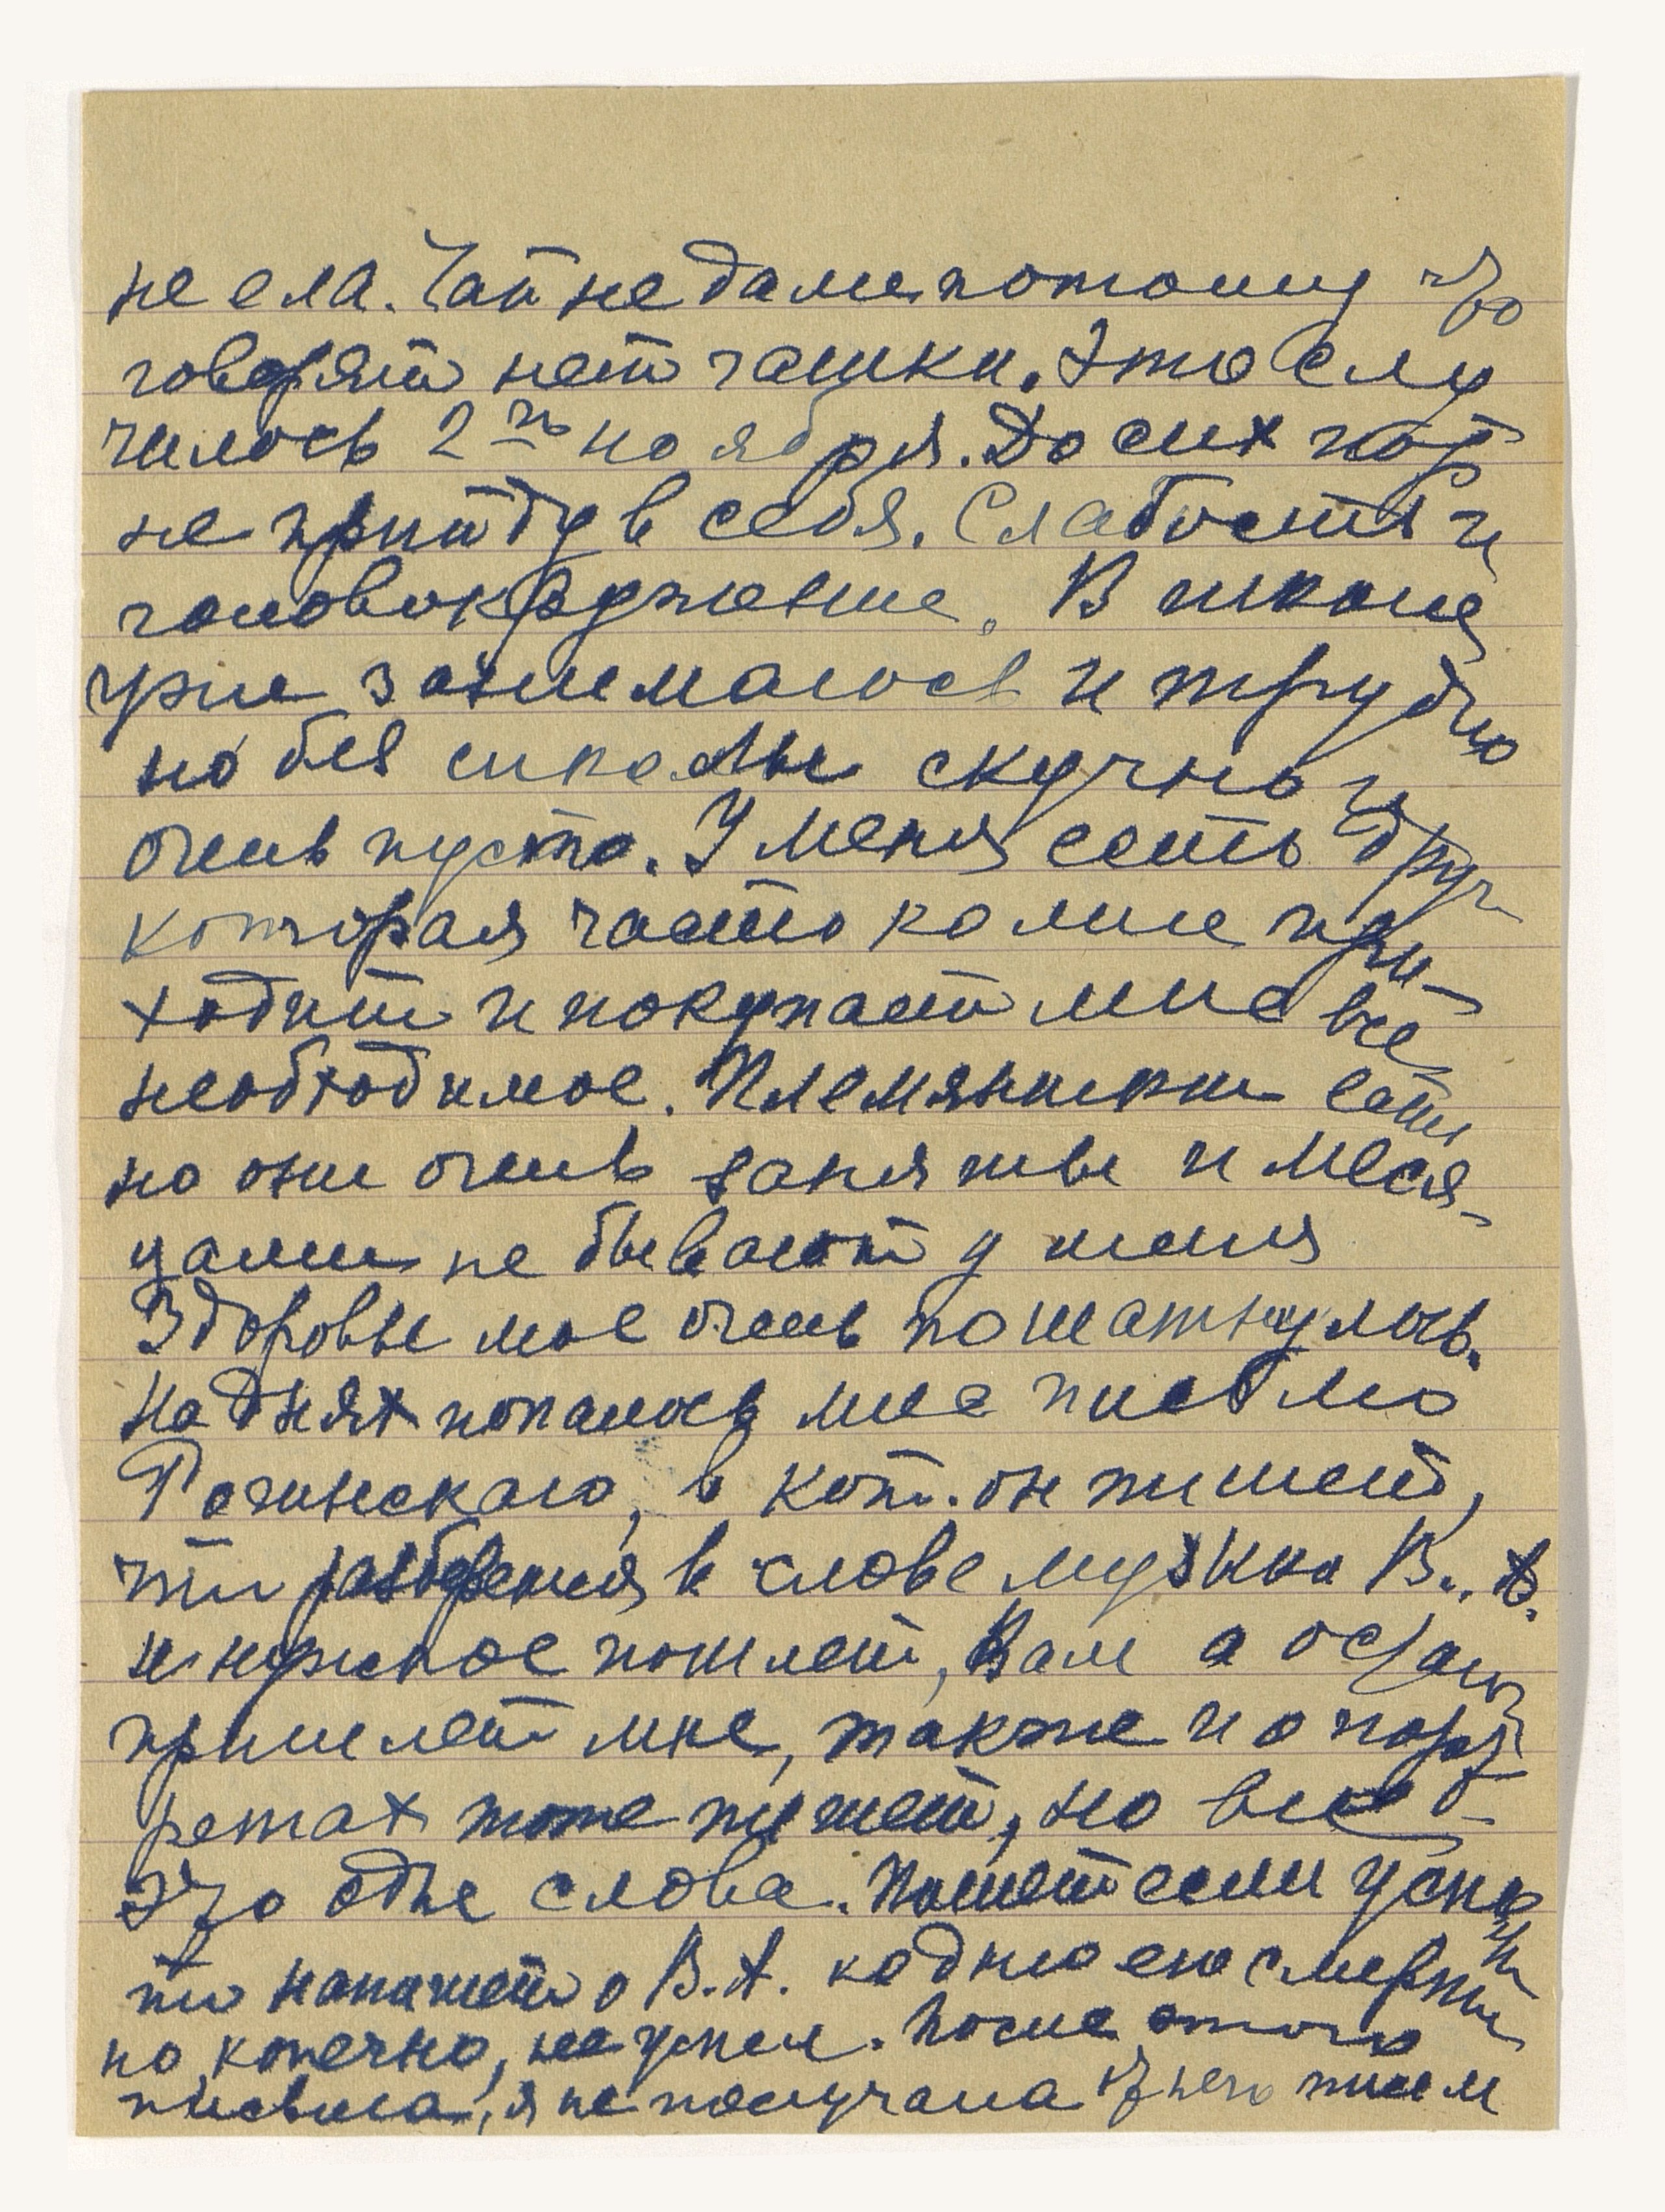 не ела. Чай не дали потому что
говорят нет чашки. Это слу
чилось 2го ноября. До сих пор
не прийду в себя. Слабость и
головокружение. В школе
уже занимаюсь и трудно
но без школы скучно и
очень пусто. У меня есть друг
которая часто ко мне при-
ходит и покупает мне всё
необходимое. Племянники есть
но они очень заняты и меся-
цами не бывают у меня
Здоровье мое очень пошатнулось.
На днях попалось мне письмо
в кот. он пишет,
что разберется в слове музыка В. А.
и нужное пошлет, Вам а осталь
пришлет мне, также и о порт-
ретах тоже пишет, но все
это одне слова. Пишет если успе
ет
то напишет о В. А. ко дню его смерти
но, конечно, не успел. После этого
письма, я не получала от него писем